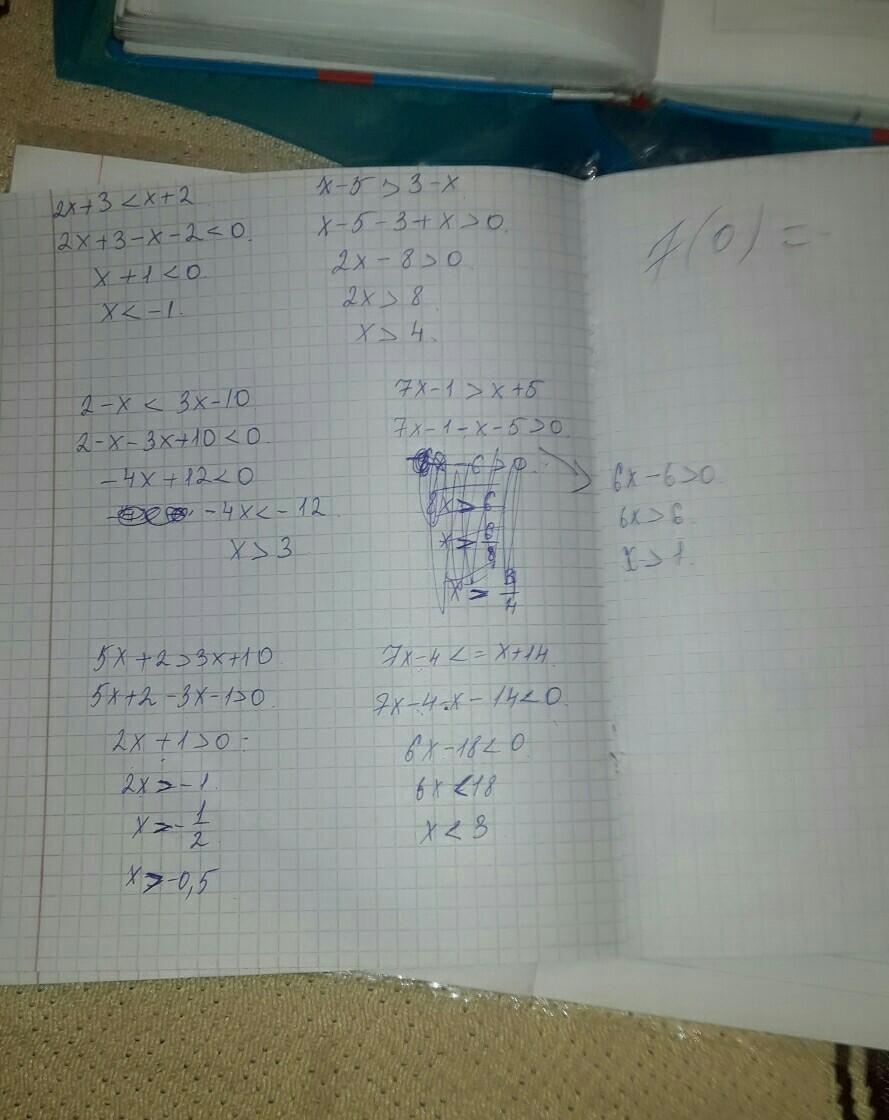 2x+3<x+2
2x+3-x-2<0.
x+1<0
x<-1.
x-5>3-x
x-5-3+x>0.
2x-8>0
2x>8
x>4.
2-x<3x-10
2-x-3x+10<0.
-4x+12<0
-4x<-12
x>3
7x-1>x+5
7x-1-x-5>0
6x-6>0
6x>6
x>1.
5x+2>3x+10
5x+2-3x-1>0
2x+1>0
2x>-1
x>-1/2
x>-0,5
7x-4<=x+14
7x-4-x-14<0
6x-18<0
6x<18
x<3
f(0)=